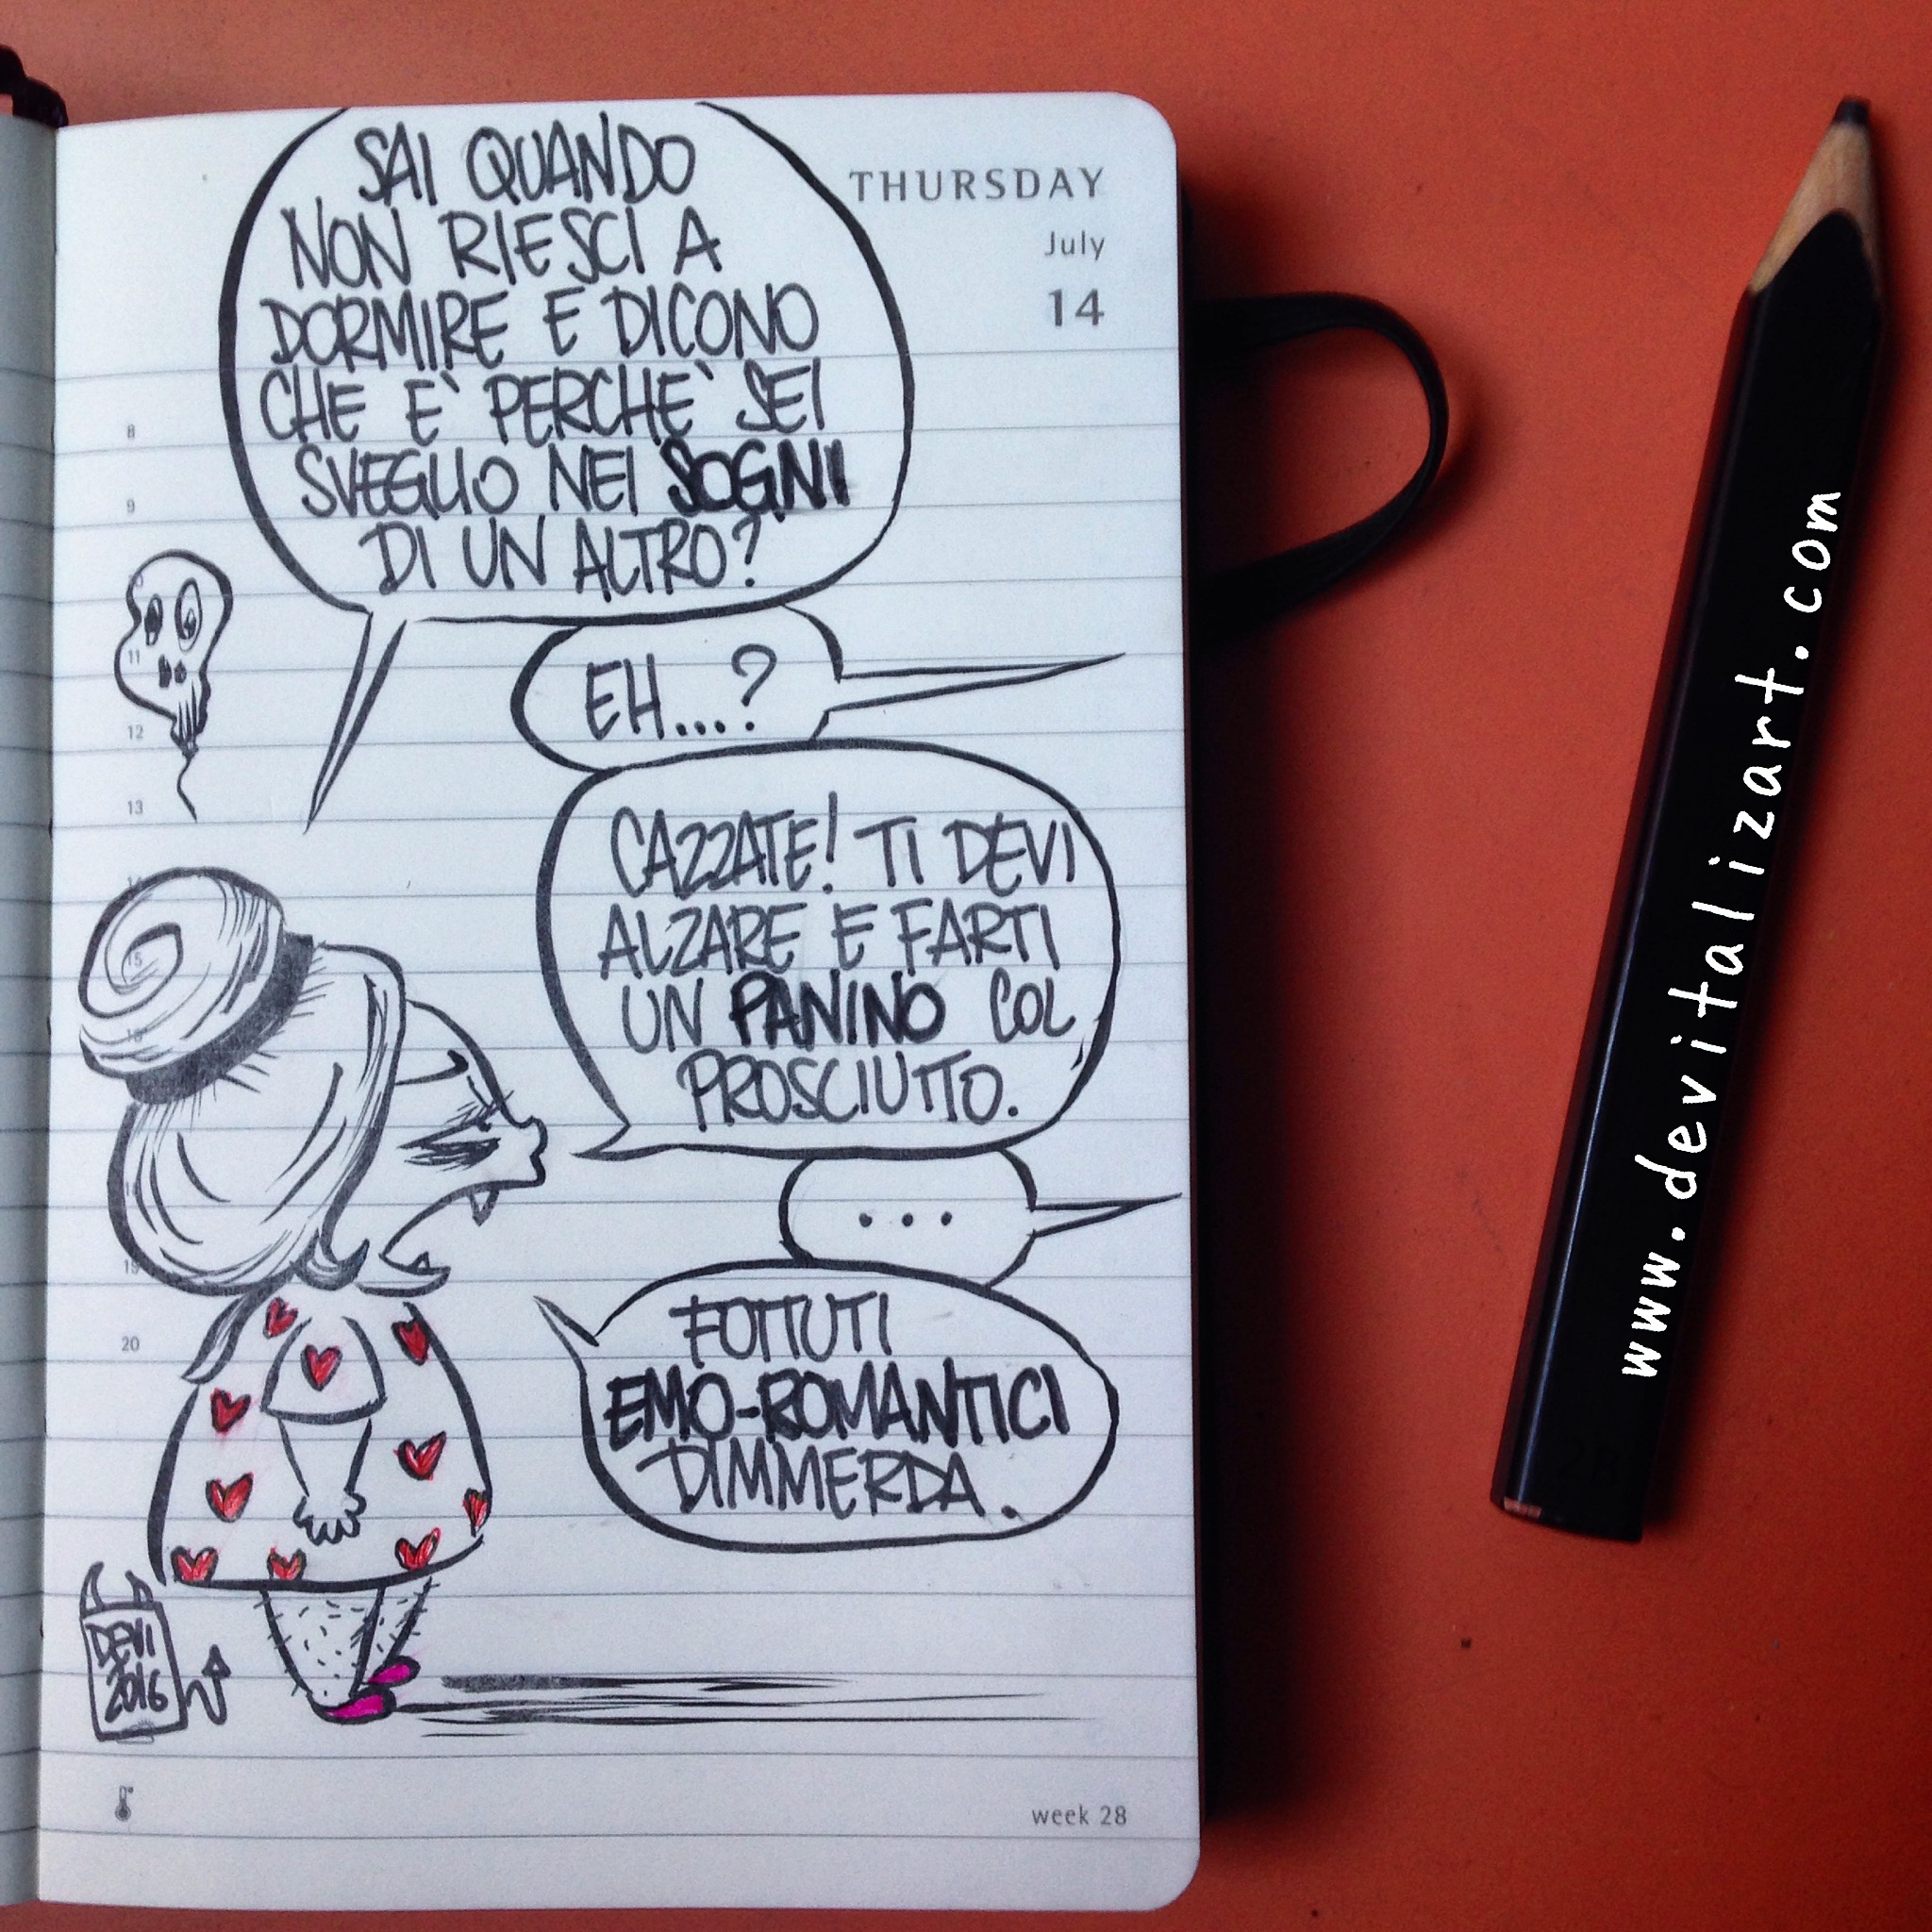 SAI QUANDO
NON RIESCI A
DORMIRE E DICONO
CHE E' PERCHE' SEI
SVEGLIO NEI SOGNI
DI UN ALTRO?
THURSDAY
July
14
8
9
11
12
13
EH...?
CAZZATE! TI DEVI
ALZARE E FARTI
UN PANINO COL
PROSCIUTTO.
15
...
19
20
FOTTUTI
EMO-ROMANTICI
DIMMERDA.
DEVI
2016
week 28
www.devitalizart.com